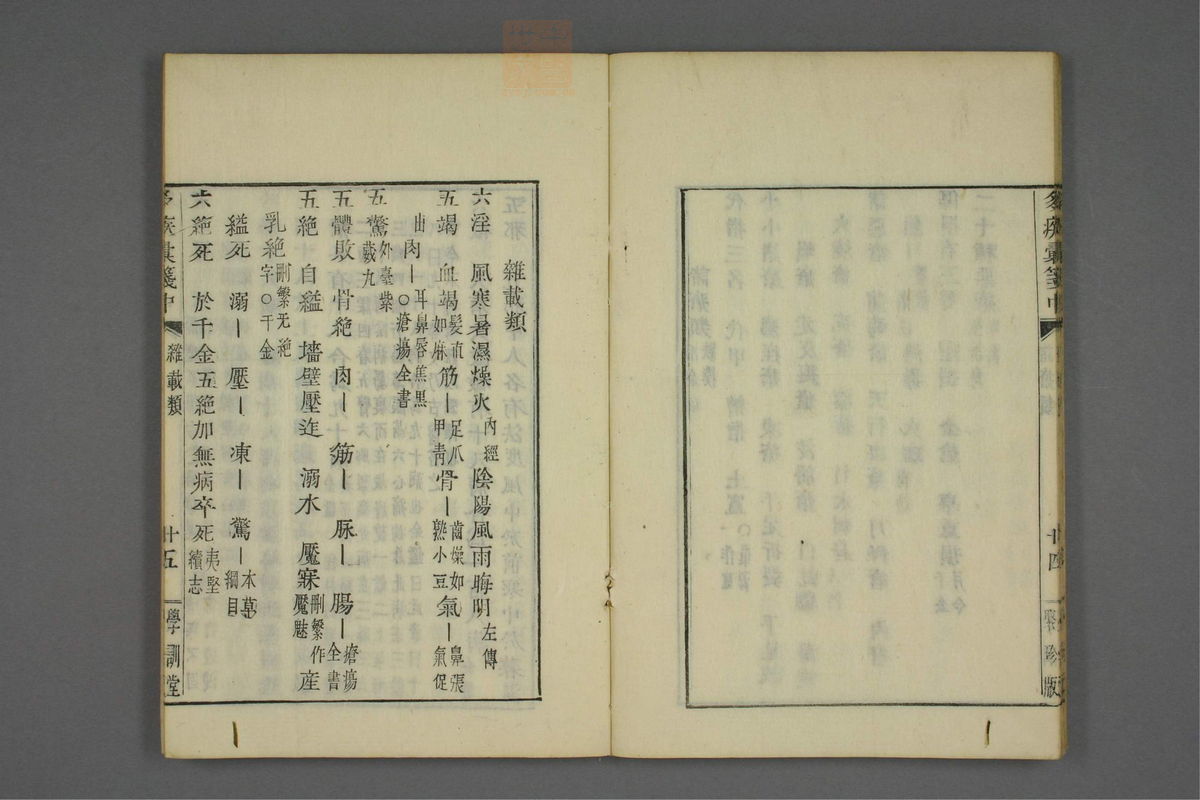 疾彙箋中
十四
聚珍版
雜載類
六淫 風寒暑濕燥火內經陰陽風雨晦明左傳
五竭 血竭髮直如麻筋―足爪甲青骨―齒燥如熟小豆氣―鼻張氣促
出肉―耳鼻唇焦黑〇瘡瘍全書
五驚外臺紫葳丸
五體敗 骨絶 肉― 筋― 脉― 腸―瘡瘍全書
五絶 自縊 墻壁壓迮 溺水 魘寐刪繁作魘魅 産
乳絶刪繁无絶字〇千金
縊死 溺― 壓― 凍― 驚―本草綱目
六絶死 於千金五絶加無病卒死夷堅續志
疾彙箋中
雜載類
十五
學訓堂